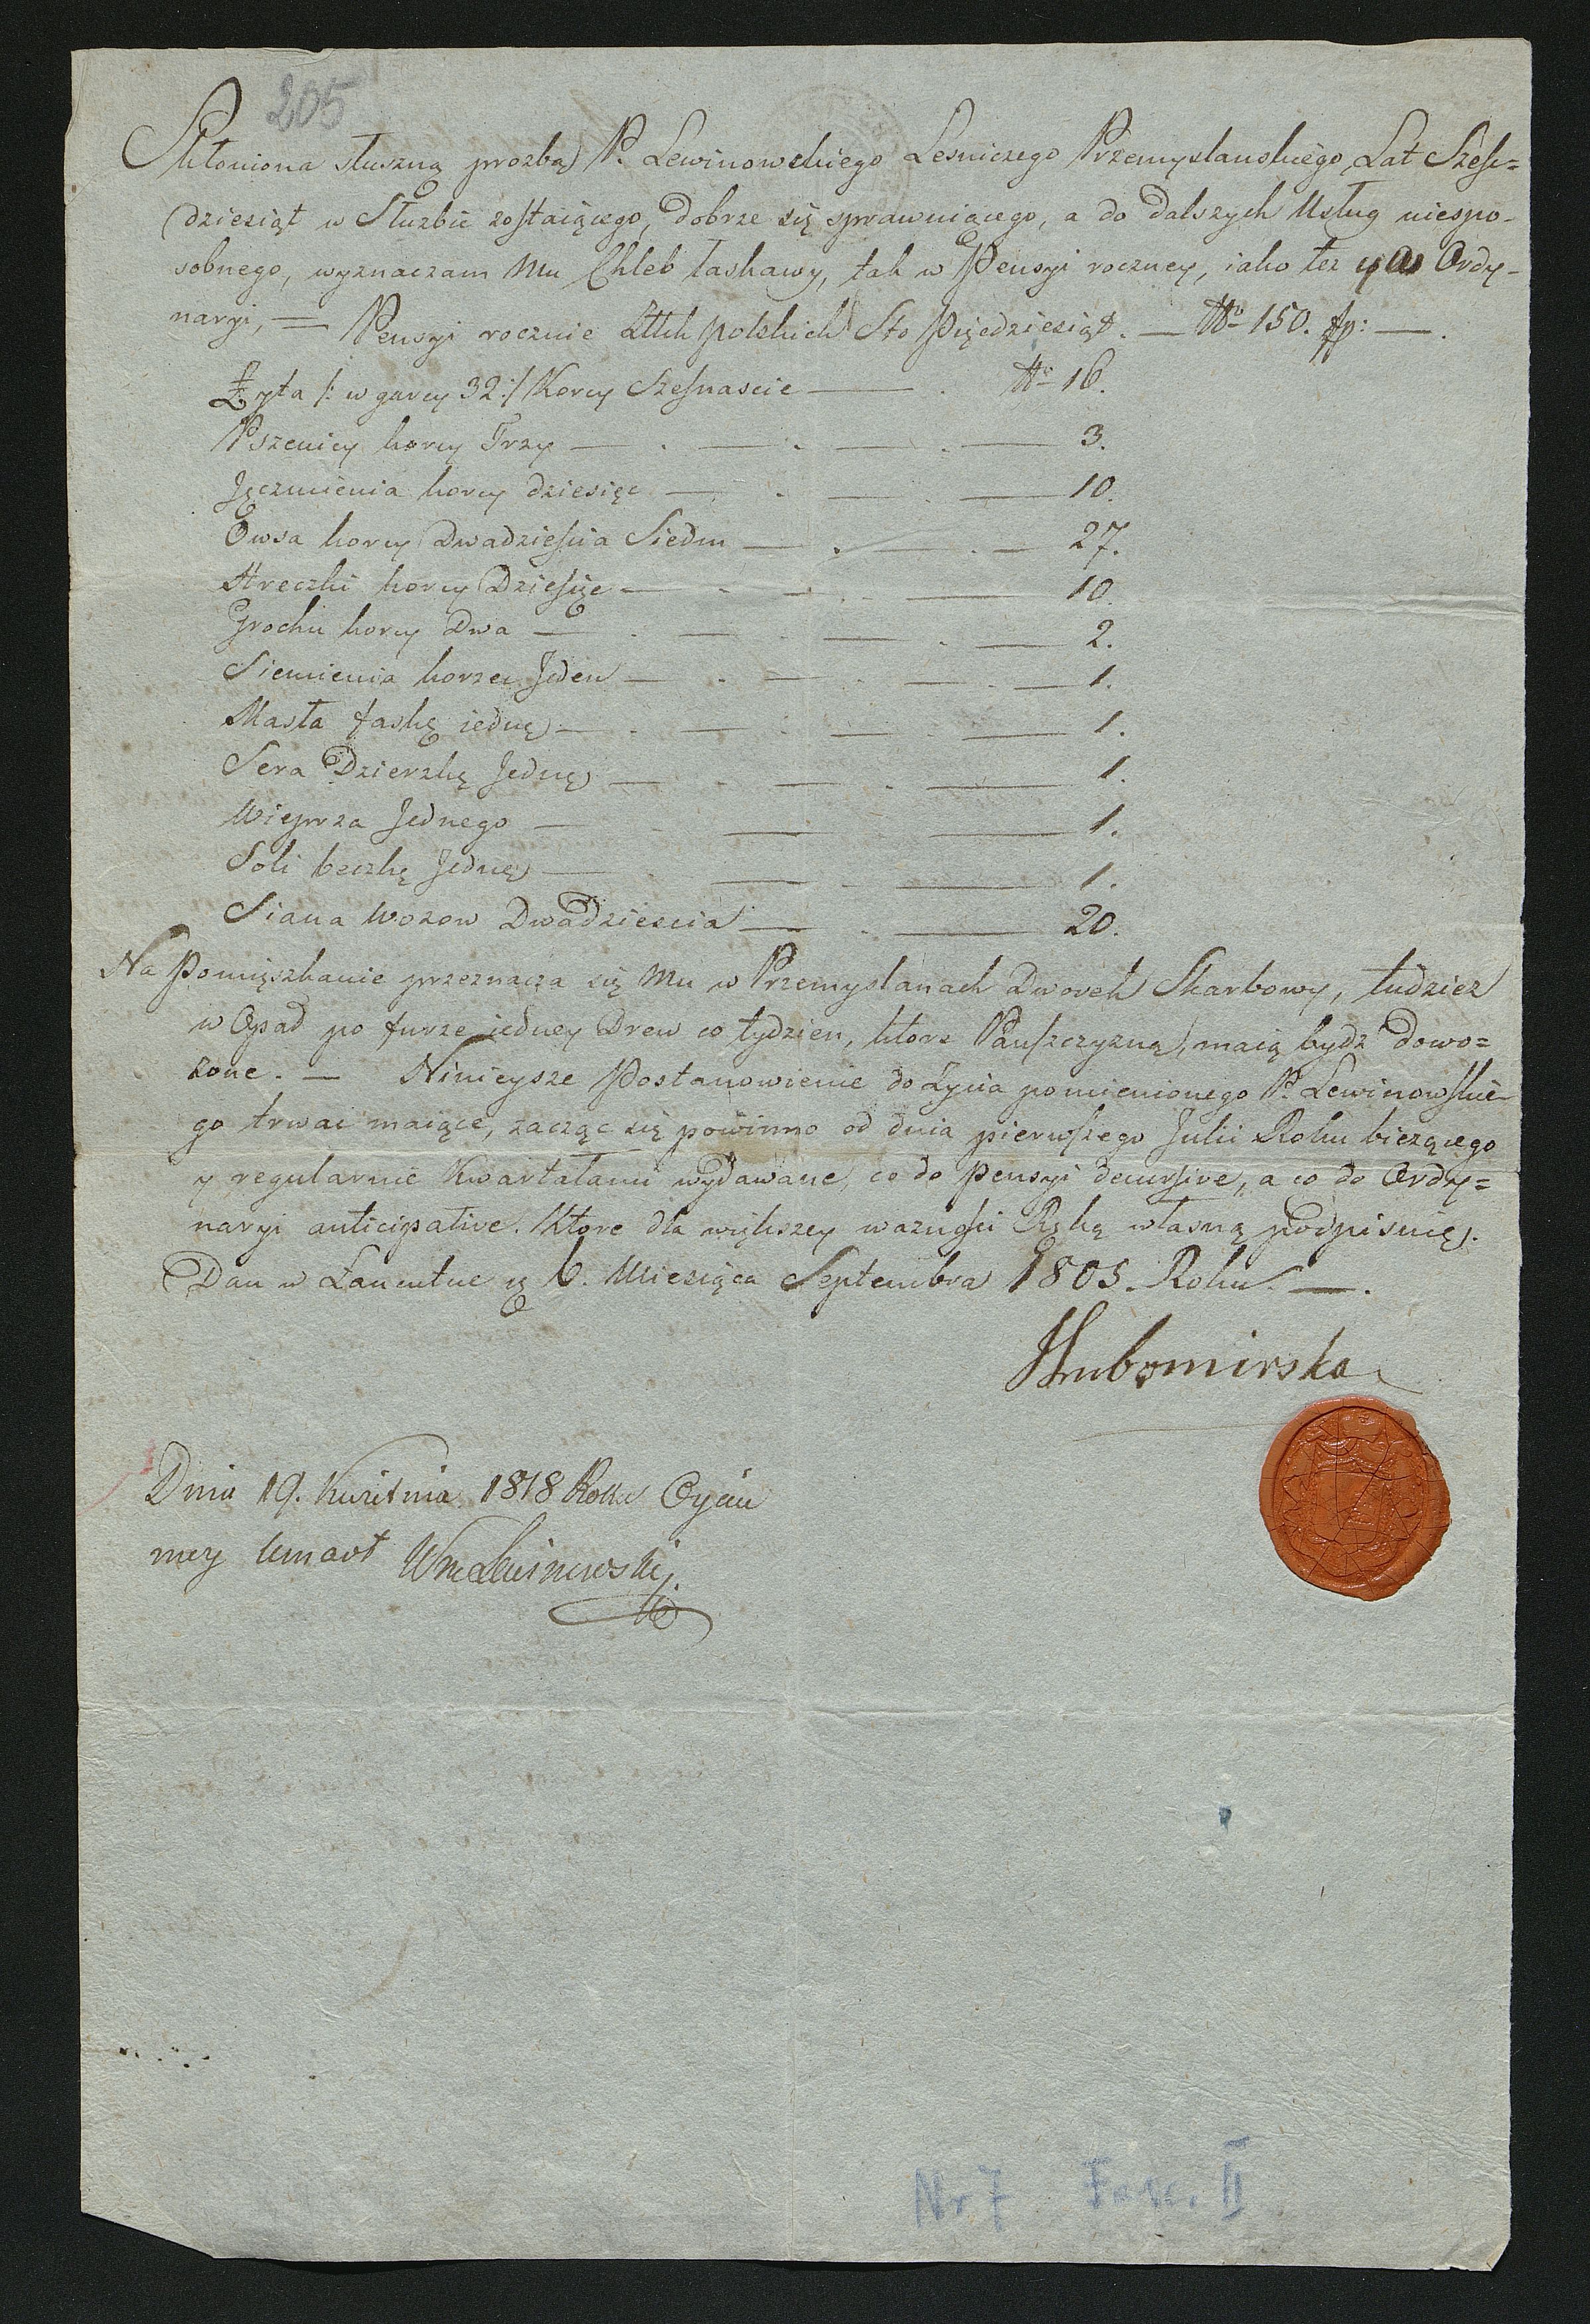 205
Skłoniona słuszną prozbą P. Lewinowskiego Lesniczego Przemyslanskiego, Lat Szesc=
dziesiąt w Służbie zostaiącego, dobrze się sprawuiącego, a do dalszych Usług niespo-
sobnego, wyznaczam Mu Chleb łaskawy, tak w Pensyi roczney, iako też y w Ordy-
naryi, — Pensyi rocznie Złłch polskich Sto Pięcdziesiąt. — Nro 150. fp: — .
Żyta /: w garcy 32 :/ Korcy Szesnascie — . Nro 16.
Pszenicy korcy Trzy — . — . — . — 3.
Jęczmienia korcy dziesięc — . — . — 10.
Owsa korcy Dwadziescia Siedm — . — . — 27.
Hreczki korcy Dziesięc — . — . — 10.
Grochu korcy Dwa — . — . — . — 2.
Siemienia korzec Jeden — . — . — . — 1.
Masła faskę iednę — . — . — . — 1.
Sera Dzierzkę Jednę — . — . — 1.
Wieprza Jednego — . — . — 1.
Soli beczkę Jednę — . — . — 1.
Siana Wozow Dwadziescia — . — 20.
Na Pomięszkanie przeznacza się Mu w Przemyslanach Dworek Skarbowy, tudzież
w Opad po furze iedney Drew co tydzien, ktore Panszczyzną maią bydz dowo=
żone. — Ninieysze Postanowienie do Życia pomienionego P. Lewinowskie-
go trwać maiące, zacząc się powinno od dnia pierwszego Julii Roku bieżącego
y regularnie Kwartałami wydawane, co do Pensyi decursive, a co do Ordy=
naryi anticipative. Ktore dla większey ważnosci Ręką własną podpisuię.
Dan w Łancutue 6. Miesiąca Septembra 1805. Roku. — .
Hubomirska
Dnia 19. Kwietnia 1818 Roku Oyciu
mey Umarł
Nr 7 Fasc. II